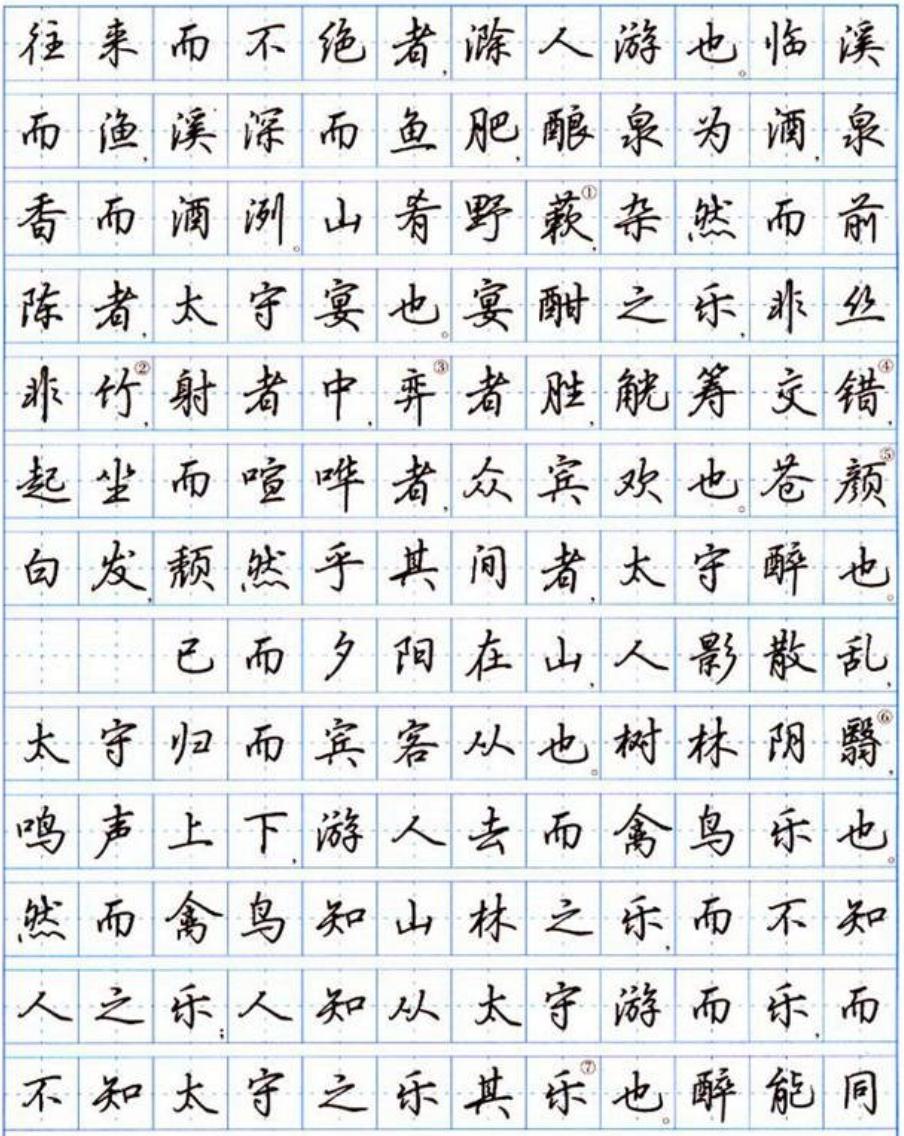 往来而不绝者,滁人游也。临溪
而渔,溪深而鱼肥,酿泉为酒,泉
香而酒洌。山肴野蔌①,杂然而前
陈者,太守宴也。宴酣之乐,非丝
非竹②,射者中,弈③者胜,觥筹交错④,
起坐而喧哗者,众宾欢也。苍颜⑤
白发,颓然乎其间者,太守醉也。
已而夕阳在山,人影散乱,
太守归而宾客从也。树林阴翳⑥,
鸣声上下,游人去而禽鸟乐也。
然而禽鸟知山林之乐,而不知
人之乐;人知从太守游而乐,而
不知太守之乐其乐⑦也。醉能同